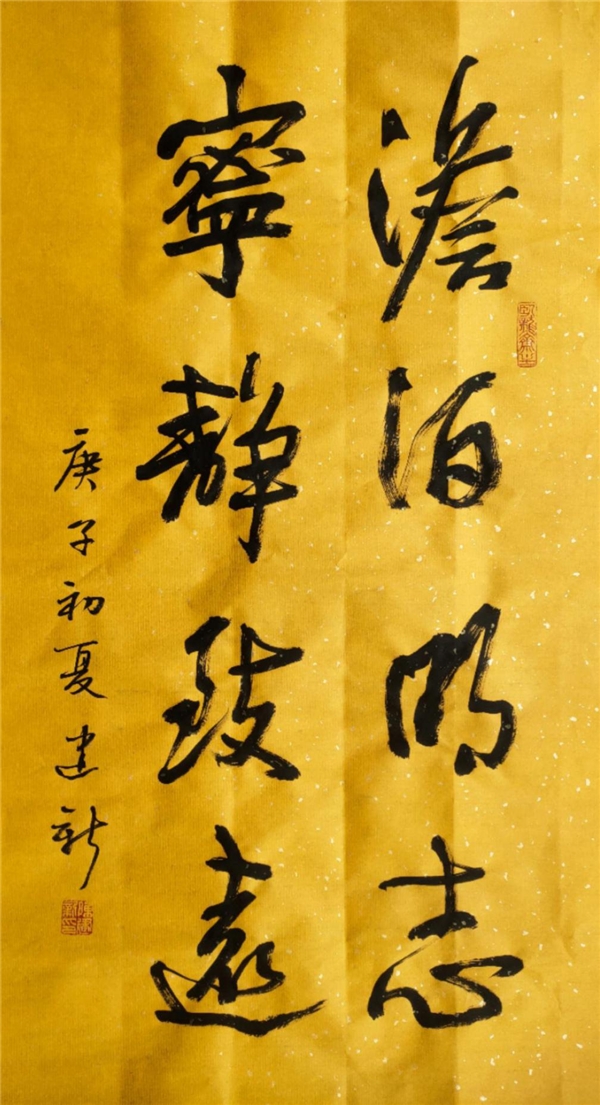 澹泊明志
寧靜致遠
庚子初夏建新